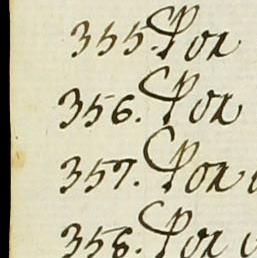 355. Por
356. Por
357. Por
358. Por